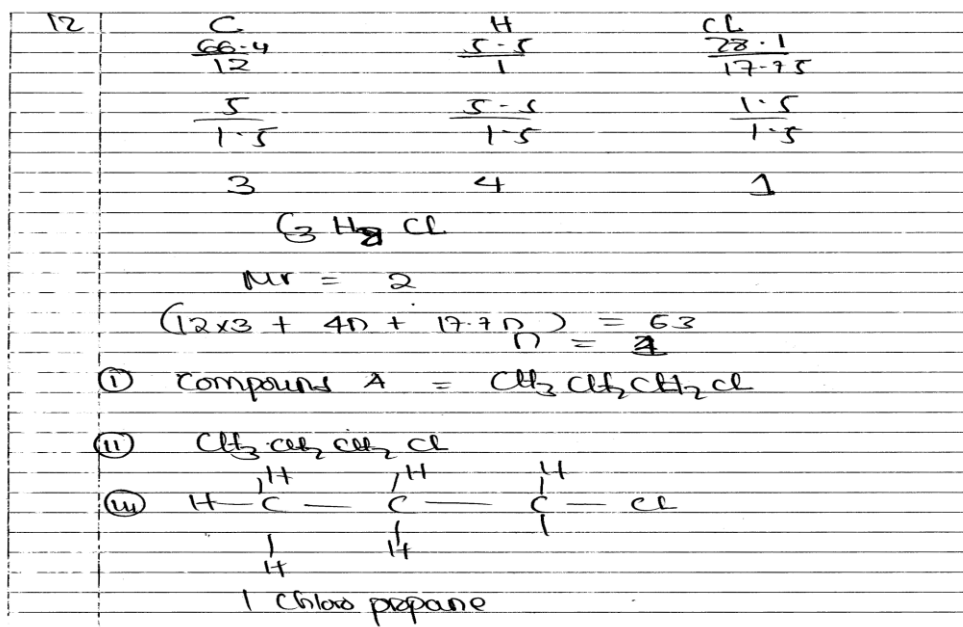 12 C H Cl
66.4/12 5.5/1 28.1/17.75
5/1.5 5.5/1.5 1.5/1.5
3 4 1
C3 H8 Cl
Mr = 2
(12x3 + 4n + 17.7n) = 63
n =
(i) Compound A = CH3 CH2 CH2 Cl
(ii) CH3 CH2 CH2 Cl
H H H
(iii) H — C — C — C — Cl
H H
1 Chloro propane